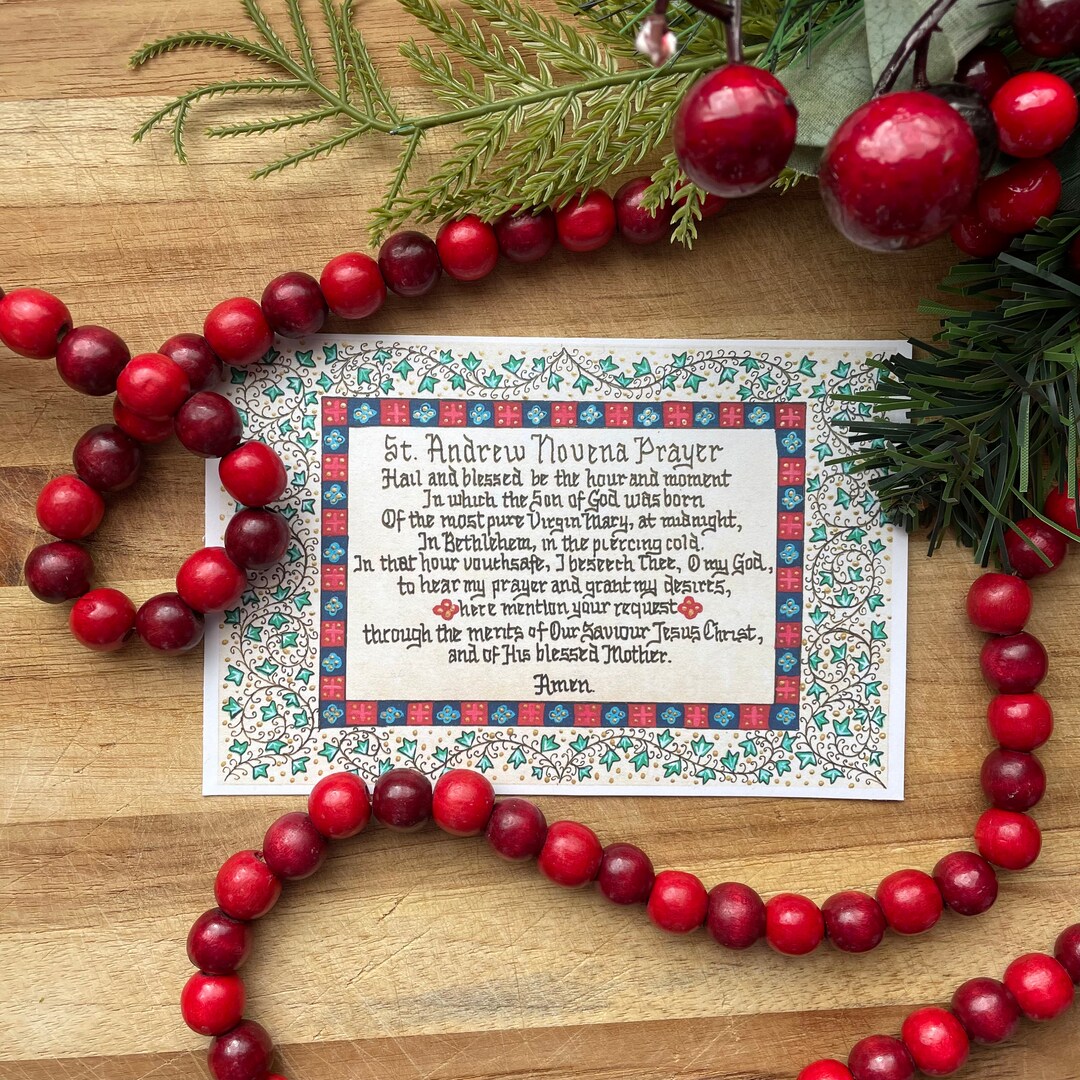 St. Andrew Novena Prayer
Hail and blessed be the hour and moment
In which the Son of God was born
Of the most pure Virgin Mary, at midnight,
In Bethlehem, in the piercing cold.
In that hour vouchsafe, I beseech Thee, O my God,
to hear my prayer and grant my desires,
here mention your request
through the merits of Our Saviour Jesus Christ,
and of His blessed Mother.
Amen.